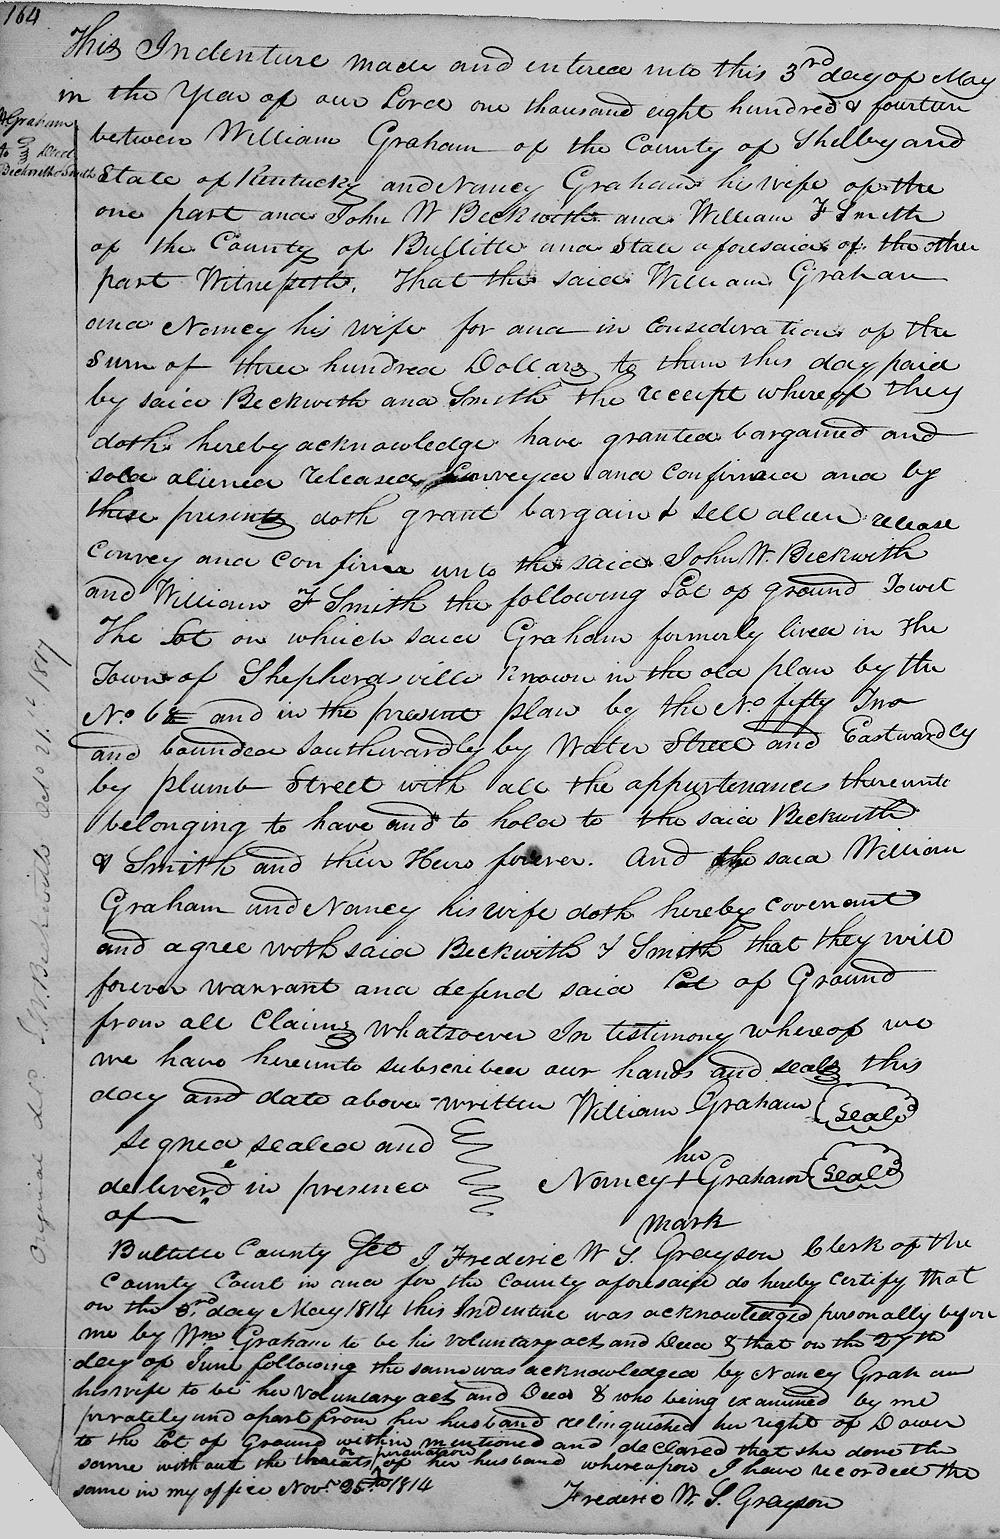 164
This Indenture made and entered into this 3rd day of May
in the Year of our Lord one thousand eight hundred & fourteen
Graham
to Deed
Beckwith & Smith
between William Graham of the County of Shelby and
State of Kentucky and Nancy Graham his wife of the
one part and John W Beckwith and William F Smith
of the County of Bullitt and State aforesaid of the other
part Witnesseth. That the said William Graham
and Nancy his wife for and in Consideration of the
Sum of three hundred Dollars to them this day paid
by said Beckwith and Smith the receipt whereof they
doth hereby acknowledge have granted bargained and
sold aliened released Conveyed and Confirmed and by
these presents doth grant bargain & sell alien release
Convey and Confirm unto the said John W. Beckwith
and William F Smith the following Lot of ground Towit
The Lot on which said Graham formerly lived in The
Town of Shepherdsville Known in the old plan by the
No. 68 and in the present plan by the No. fifty Two
and bounded Southwardly by Water Street and Eastwardly
by plumb Street with all the appurtenances thereunto
belonging to have and to hold to the said Beckwith
& Smith and their Heirs forever. And the said William
Graham and Nancy his wife doth hereby Covenant
and agree with said Beckwith & Smith that they will
forever warrant and defend said Lot of Ground
from all Claims Whatsoever In testimony whereof we
we have hereunto subscribed our hands and seals this
day and date above written William Graham Seal
Signed sealed and
her
deliver'd in presence Nancy + Graham Seal
of
mark
Bullitt County Sct I Frederic W. S. Grayson Clerk of the
County Court in and for the County aforesaid do hereby Certify that
on the 3rd day May 1814 this Indenture was acknowledged personally before
me by Wm Graham to be his voluntary act and Deed & that on the 27th
day of June following the same was acknowledged by Nancy Graham
his wife to be her voluntary act and Deed & who being examined by me
privately and apart from her husband relinquished her right of Dower
to the Lot of Ground within mentioned and declared that she done the
same without the threats or persuasion of her husband whereupon I have recorded the
same in my office Novr. 25th 1814
Frederic W. S. Grayson
Original Dd. J. W. Beckwith Oct 21st 1817